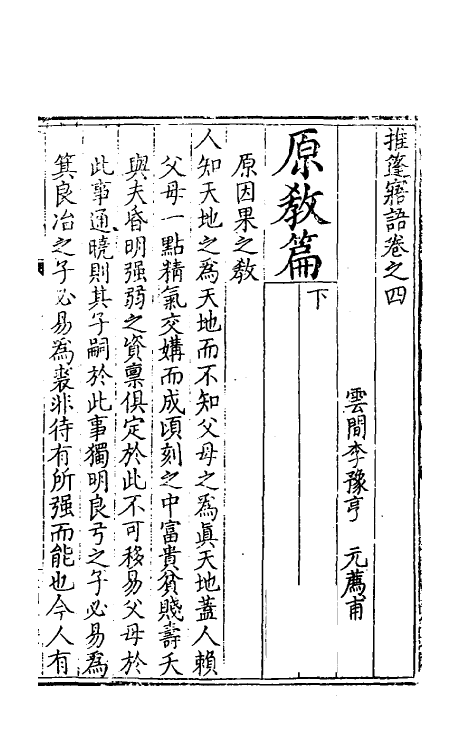 推篷寤語卷之四
雲間李豫亨 元薦甫
原教篇下
原因果之教
人知天地之為天地而不知父母之為真天地蓋人賴
父母一點精氣交媾而成頃刻之中富貴貧賤壽夭
與夫昏明强弱之資稟俱定於此不可移易父母於
此事通曉則其子嗣於此事獨明良弓之子必易為
箕良冶之子必易為裘非待有所强而能也今人有